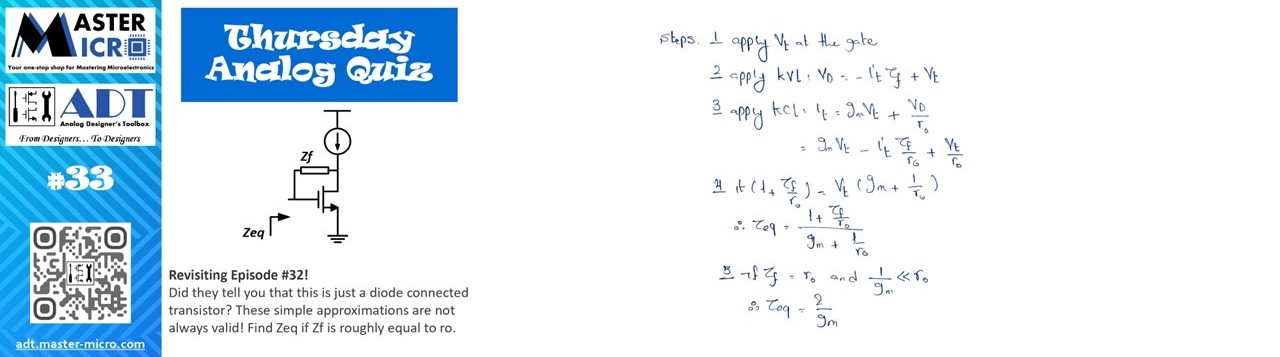 MASTER
MICR
Your one-stop shop for Mastering Microelectronics
ADT
Analog Designer's Toolbox
From Designers... To Designers
#33
adt.master-micro.com
Thursday
Analog Quiz
Zf
Zeq
Revisiting Episode #32!
Did they tell you that this is just a diode connected
transistor? These simple approximations are not
always valid! Find Zeq if Zf is roughly equal to ro.
steps. 1 apply Vt at the gate
2 apply KVL: VD = - it Zf + Vt
3 apply KCL: it = gmVt + VD/ro
= gmVt - it Zf/ro + Vt/ro
4 it (1 + Zf/ro) = Vt (gm + 1/ro)
∴ Zeq = (1 + Zf/ro) / (gm + 1/ro)
5 if Zf = ro and 1/gm << ro
∴ Zeq = 2/gm